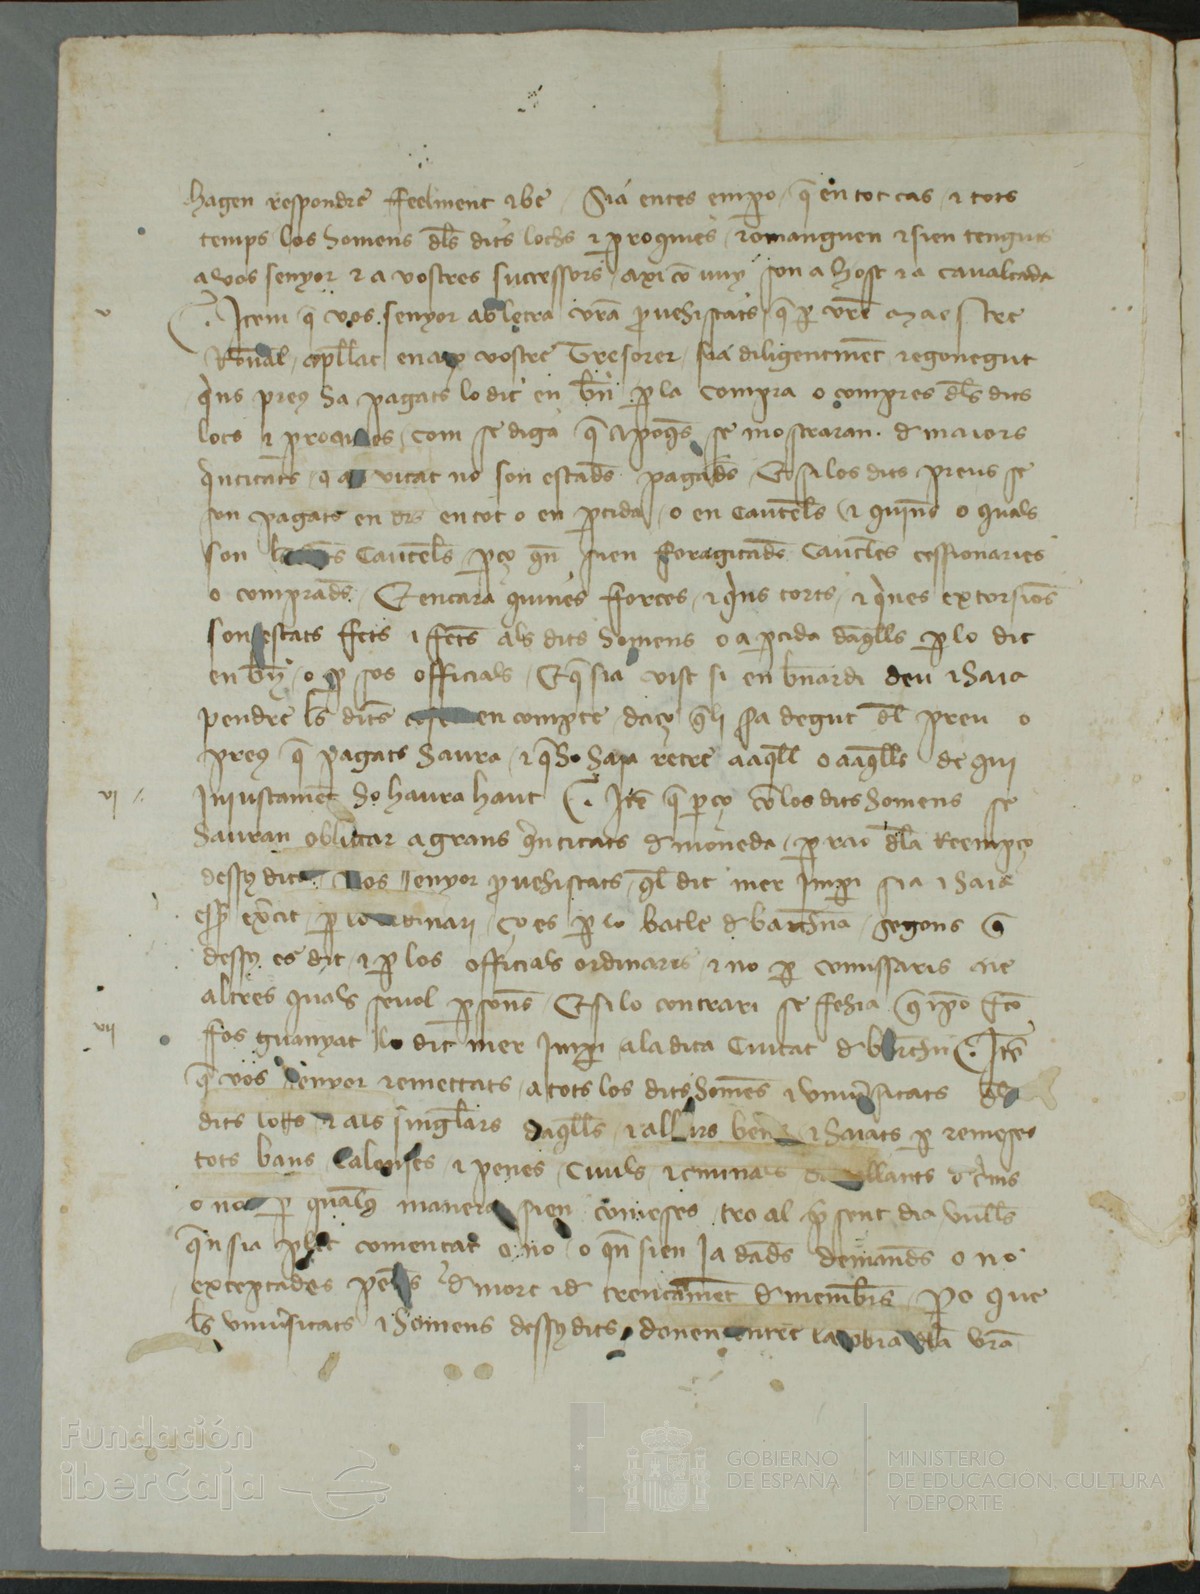 hagen respondre ffeelment e be. Sia entes empo q̄ en tot cas e tots
temps los homens dl̄s dits lochs e proquies romanguen e sien tenguts
a vos senyor e a vostres successors axi cō vuy son a host e a cavalcada
v Item q̄ vos senyor ab letra vr̄a provehiscats q̄ p vr̄e maestre
Ronal, apl̄lat encara vostre Tresorer, sia diligentmēt regonegut
qns preu ha pagats lo dit en bn̄ p la compra o compres dl̄s dits
locs e proquies, com se diga q̄ apoqs se mostraran d maiors
qntitats, q a vitat no son estads pagads. E si los dits preus se
son pagats en drs en tot o en ptida o en Cautēls e quins o quals
son Cautēls pço qn̄ sien foragitads Cautl̄es cessionaries
o comprads. E encara quines fforces, e qns torts, e qnes extorsions
son estats ffets i ffets als dits homens o a ptida daql̄ls p lo dit
en bn̄, o p sos officials. E q̄ sia vist si en bn̄ardi deu e haia
pendre ls dits en compte, daço q̄ li sia degut dl̄ preu o
preu q̄ pagats haura e q̄ ho haja retre a aql̄l o a aql̄ls de qui
vi Iniustamēt ho haura haut. Itē q̄ pço cō los dits homens se
hauran obligar a grans qntitats d moneda p rao dl̄a Reempço
dessus dita vos senyor provehiscats ql̄ dit mer Impi sia e haia
esser exercit p lo ordinari, ço es p lo batle d barchn̄a, segons q̄
dessus es dit e p los officials ordinaris e no p comissaris ne
altres quals sevol psons. E si lo contrari se ffehia q̄ ipo fcō
vii fos guanyat lo dit mer Impi a la dita Ciutat d barchn̄. Itē
q̄ vos senyor remettats a tots los dits homēs e univsitats dl̄s
dits lochs e als singl̄ars daql̄ls, e a llurs bens e haiats p remeses
tots bans calonies e penes, civils e criminals davallants d crims
o no p qual̄s manera sien comeses tro al present dia vull̄s
qn̄ sia plet comencat o no o qn̄ sien ja dads demands o no
exceptades penes d mort e d trencamēt d membrs. Po que
ls univsitats e homens dessus dits donen entre la obra dl̄a vr̄a
Fundación
iberCaja
GOBIERNO
DE ESPAÑA
MINISTERIO
DE EDUCACIÓN, CULTURA
Y DEPORTE